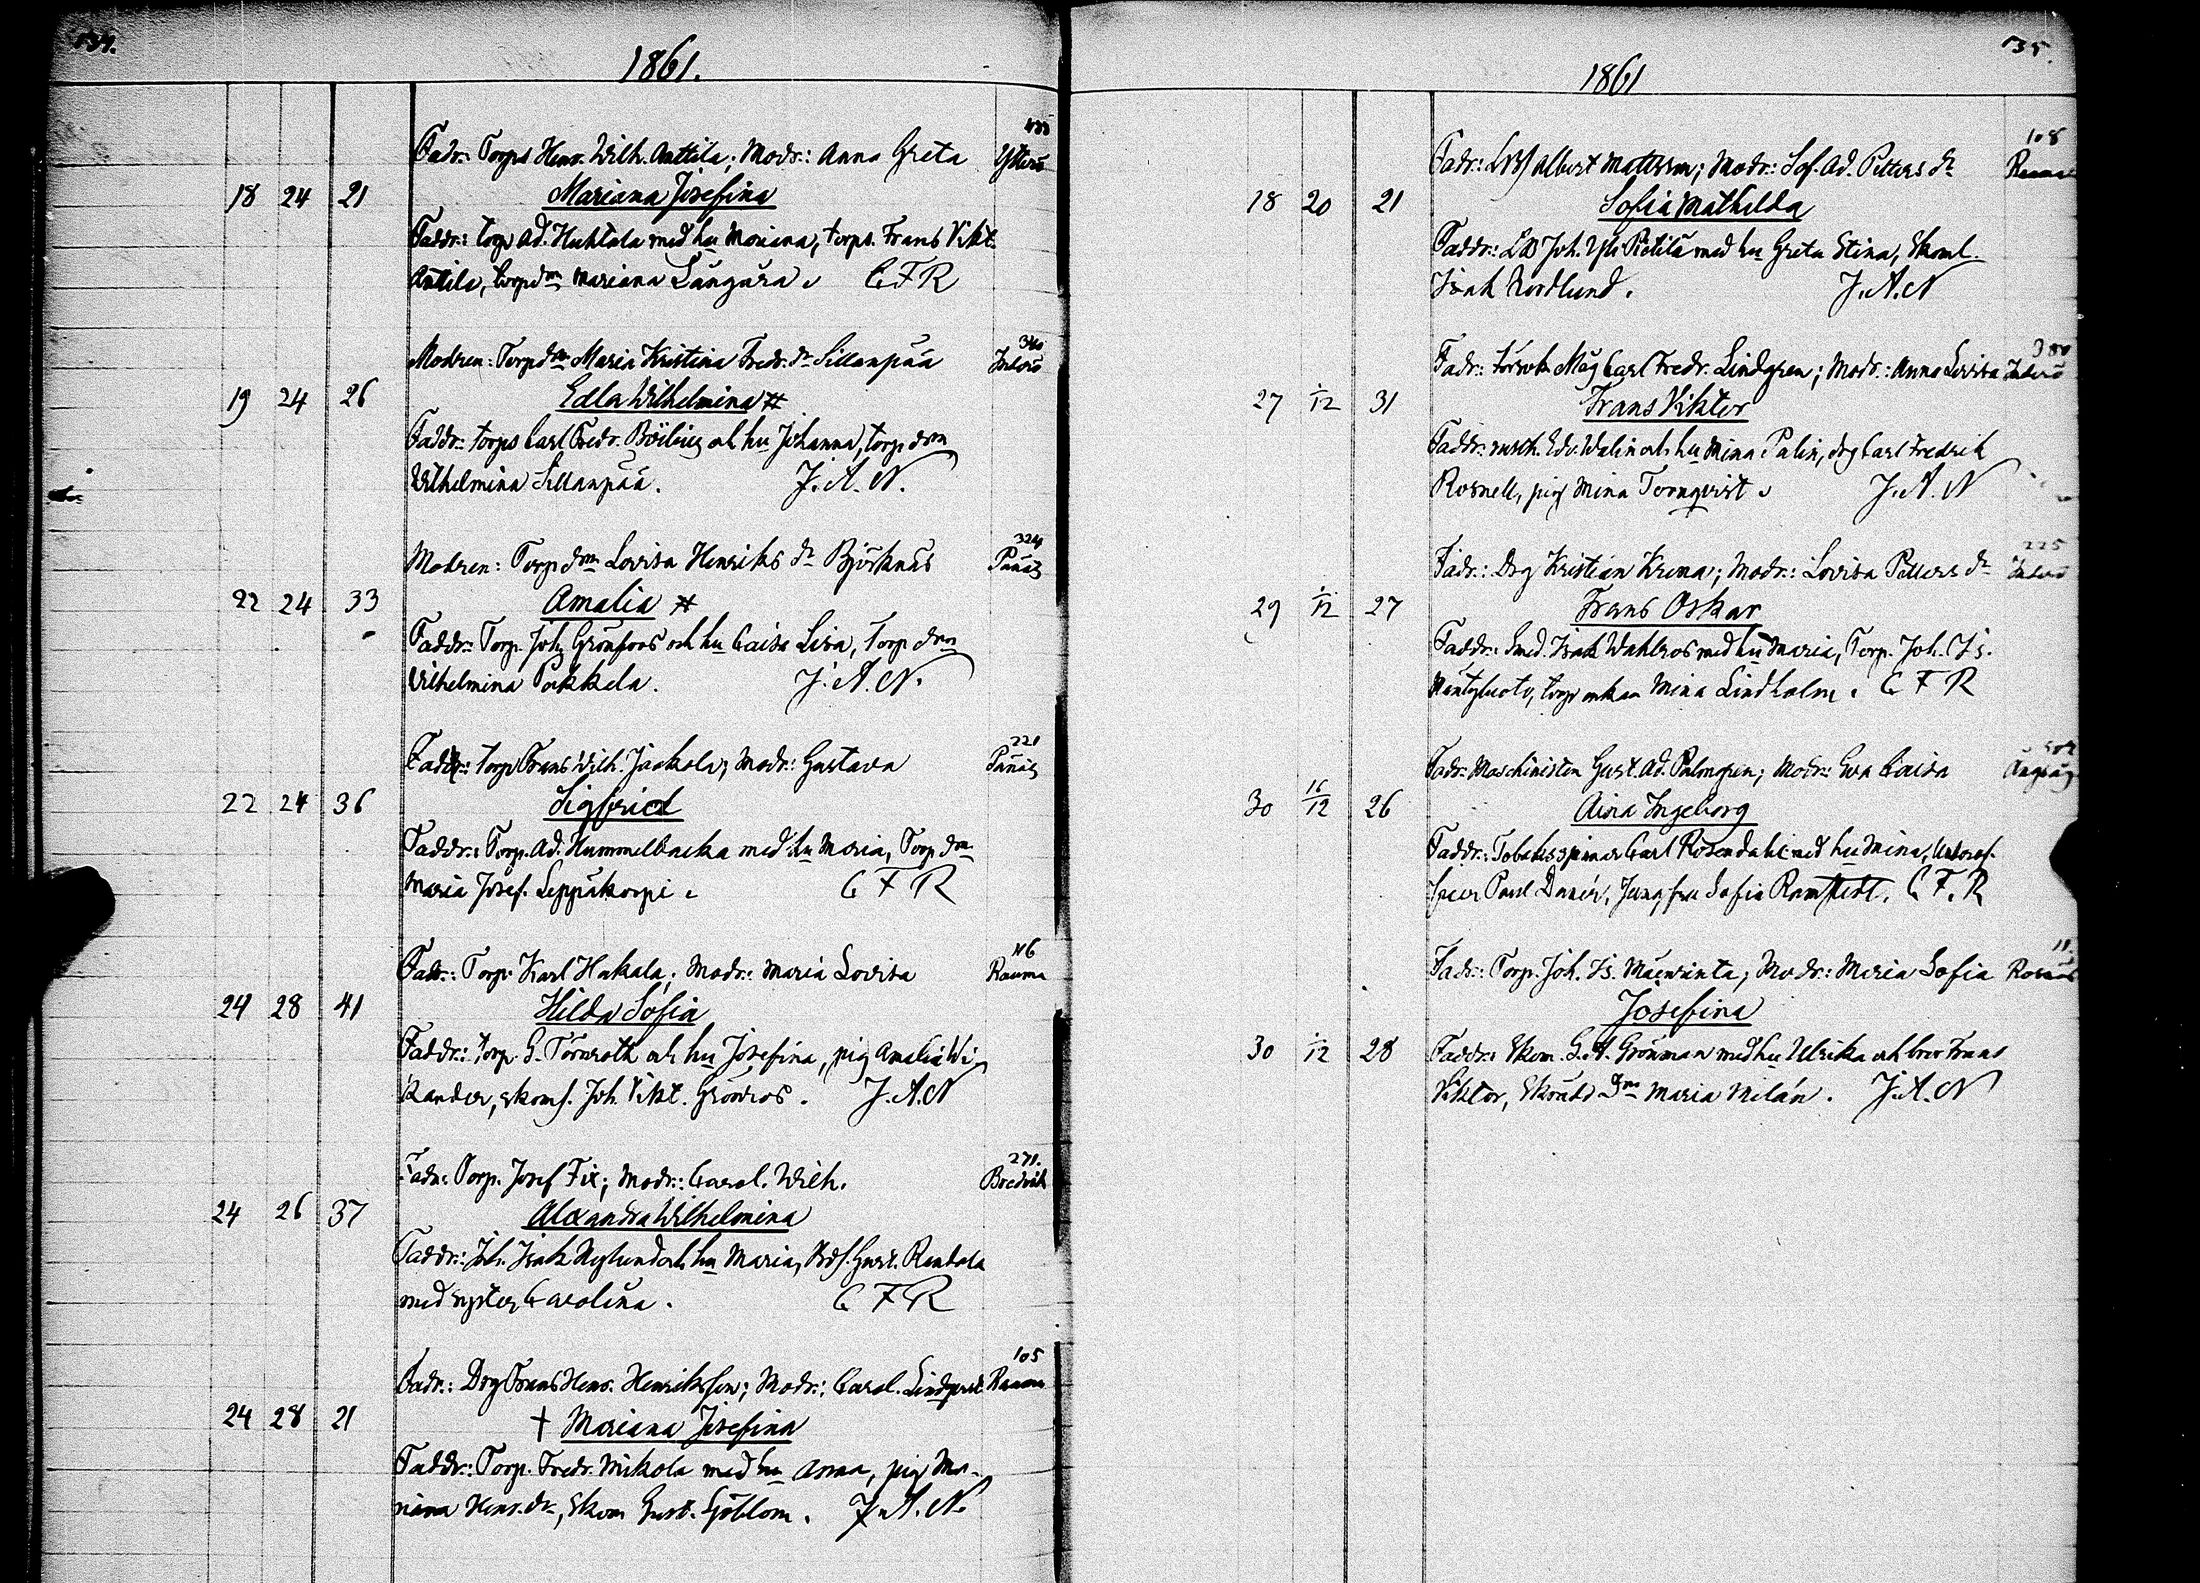 134.
1861.
433
Fadr: Torps Henr. Wilh. Anttila; Modr: Anna Greta Ytterö
18 24 21 Mariana Josefina
Faddr: torp Ad. Huhtala med hu Mariana, torps. Frans Vikt.
Anttila, torpdn Mariana Långåra. C F R
340
Modren: Torpdn Maria Kristina Fredr. dr Sillanpää Inderö
19 24 26 Edla Wilhelmina #
Faddr: torps Carl Fredr. och hu Johanna, torp dn
Vilhelmina Sillanpää. J. A. N.
324
Modren: Torpdn Lovisa Henriks dr Björknäs Pånäs
22 24 33 Amalia #
Faddr: Torp. Joh Grönfors och hu Caisa Lisa, Torp. dn
Vilhelmina Pokkela. J. A. N.
221
Fadr: torp Frans Wilh. Jaakola; Modr: Gustava Pånäs
22 24 36 Sigfrid
Faddr: Torp. Ad. Hummelbacka med hu Maria, Torp dn
Maria Josef. Leppäkorpi. C F R
116
Fadr: Torp. Karl Hakala; Modr: Maria Lovisa Rauma
24 28 41 Hilda Sofia
Faddr: torp. G. Törnroth och hu Josefina, pig Amalia Wi-
kander, skoms. Joh. Vikt. Grönroos. J. A. N
271.
Fadr: Torp. Josef Fix; Modr: Carol. Wilh. Bredvik
24 26 37 Alexandra Wilhelmina
Faddr: Joh. Isak Nylund och hu Maria, Gust. Randala
med syster Carolina. C F R
105
Fadr: Drg Frans Henr. Henriksson; Modr: Carol. Lindqvist Rauma
24 28 21 † Mariana Josefina
Faddr: Torp. Fredr. Mikola med hu Anna, pig Ma-
riana Henr. dr, Skom Gust. Sjöblom. J. A. N.
135.
1861
108
Fadr: Albert Mattsson; Modr: Sof. Ad. Petters dr Rauma
18 20 21 Sofia Mathilda
Faddr: Joh. Yli Pietilä med hu Greta Stina, Skoml.
Isak Nordlund. J. A. N
380
Fadr: Mag Carl Fredr. Lindgren; Modr: Anna Lovisa Inderö
27 1/12 31 Frans Viktor
Faddr: Edv. Walin och hu Mina Palin, drg Carl Fredrik
Rosnell, pig Mina Tornqvist. J. A. N
225
Fadr: Drg Kristian Krena; Modr: Lovisa Petters dr Inderö
29 1/12 27 Frans Oskar
Faddr: Smed. Isak Wahlros med hu Maria, Torp. Joh. Is.
Mäntyluoto, torp enkan Mina Lindholm. C F R
Fadr: Maschinisten Gust. Ad. Palmgren; Modr: Eva Caisa Ångsåg
30 16/12 26 Aina Ingeborg
Faddr: Tobaksspinner Carl Rosendahl med hu Mina, Underof-
ficer Paul Danér, Jungfru Sofia Ramstedt. C F. R
11.
Fadr: Torp. Joh. Is. Mäenranta; Modr: Maria Sofia Rosnäs
Josefina
30 1/12 28 Faddr: Skom. G. A. Grönman med hu Ulrika och bror Frans
Viktor, Skrädd dn Maria Nelán. J. A. N